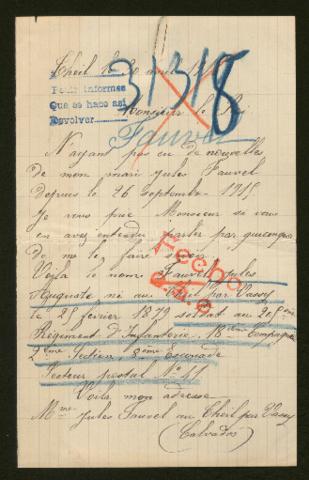 Theil le 20 août
31318
Para informes
Que se hace así
Devolver
Monsieur le Roi
Fauvel
N'ayant pas eu de nouvelles
de mon mari Jules Fauvel
depuis le 26 septembre 1915
Je vous prie Monsieur si vous
en avez entendu parler par quiconque
de me le faire savoir.
Fecho
Voilà le nom Fauvel Jules
Auguste né au Theil par Vassy
le 25 février 1879 soldat au
Régiment d'Infanterie, 18ème Compagnie
2ème Section, 8ème Escouade
Secteur postal No 41
Voilà mon adresse
Mme Jules Fauvel au Theil par Vassy
(Calvados)